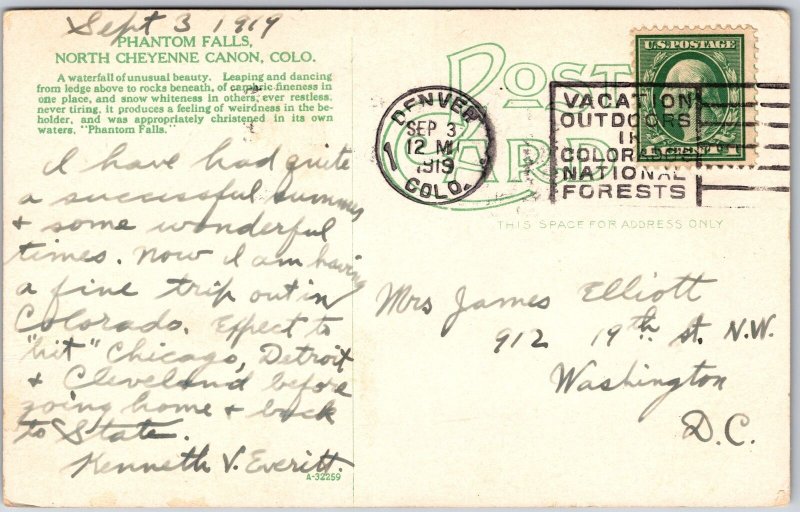 Sept 3 1919
PHANTOM FALLS,
NORTH CHEYENNE CANON, COLO.
A waterfall of unusual beauty. Leaping and dancing
from ledge above to rocks beneath, of cambric fineness in
one place, and snow whiteness in others, ever restless,
never tiring, it produces a feeling of weirdness in the be-
holder, and was appropriately christened in its own
waters. "Phantom Falls."
I have had quite
a successful summer
& some wonderful
times. Now I am having
a fine trip out in
Colorado. Expect to
"hit" Chicago, Detroit
& Cleveland before
going home & back
to State.
Kenneth V. Everitt.
A-32259
POST
CARD
DENVER
SEP 3
12 M
1919
COLO.
VACATION
OUTDOORS
IN
COLORADO'S
NATIONAL
FORESTS
U.S. POSTAGE
1 CENT 1
THIS SPACE FOR ADDRESS ONLY
Mrs James Elliott
912 19th st. N.W.
Washington
D.C.